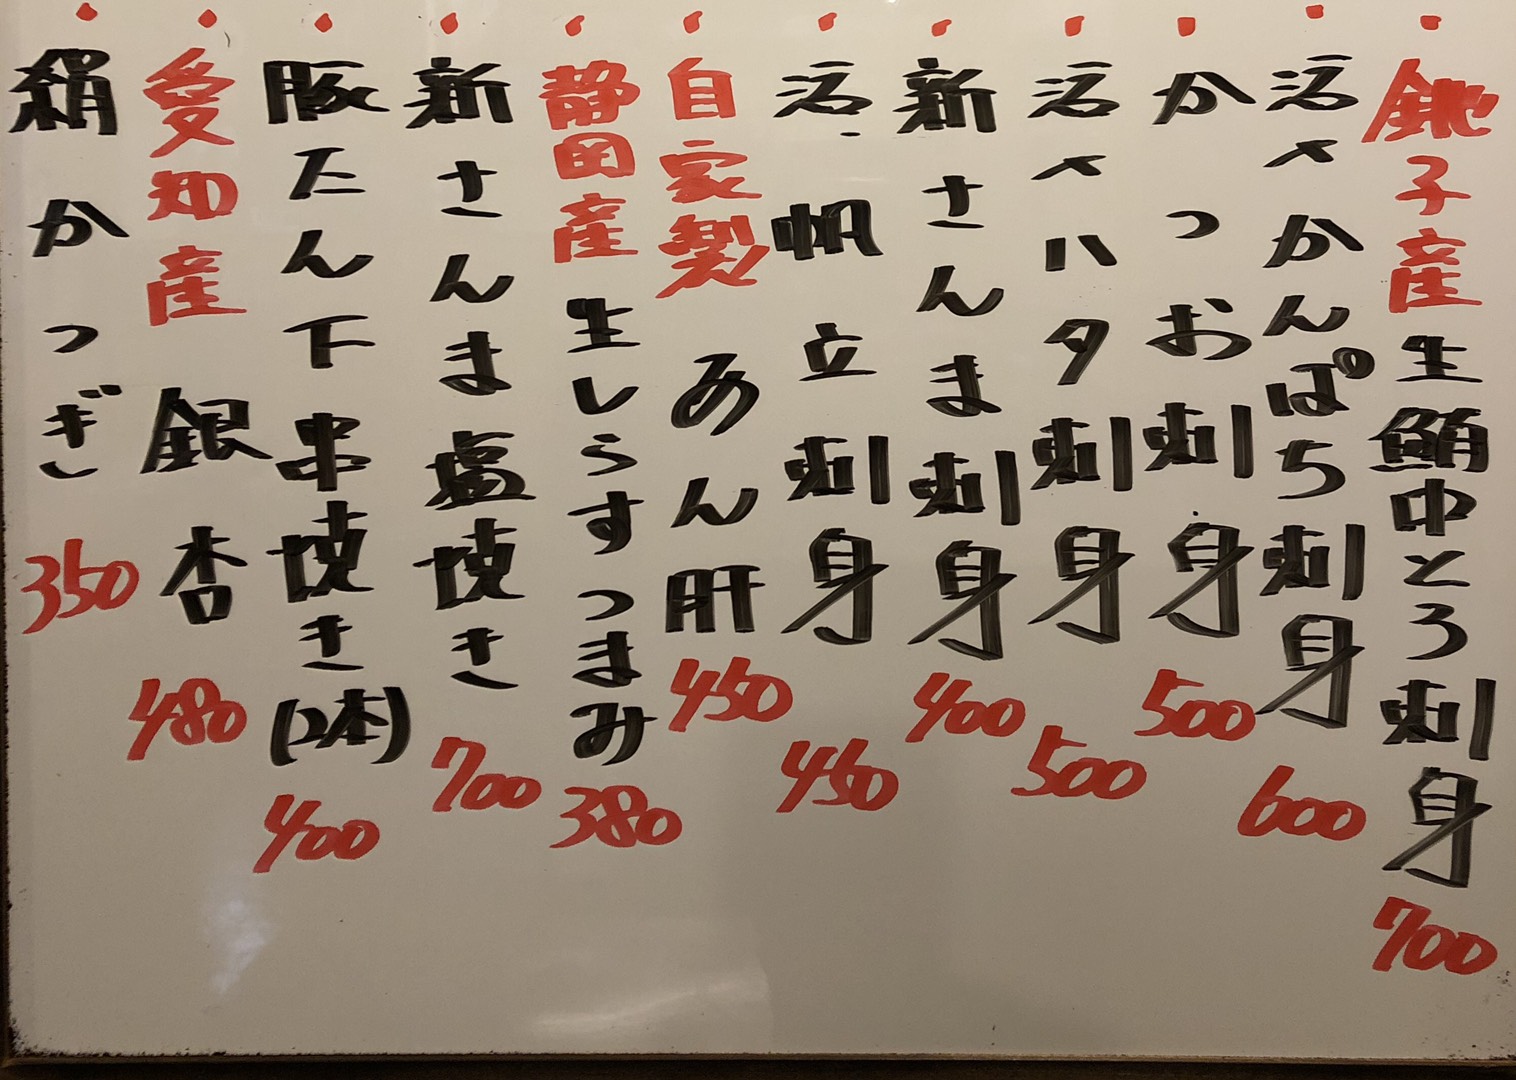 銚子産生鮪中とろ刺身 700
活〆かんぱち刺身 600
かつお刺身 500
活〆ハタ刺身 500
新さんま刺身 400
活帆立刺身 450
自家製あん肝 450
静岡産生しらすつまみ 380
新さんま塩焼き 700
豚たん下串焼き(2本) 400
愛知産銀杏 480
絹かつぎ 350